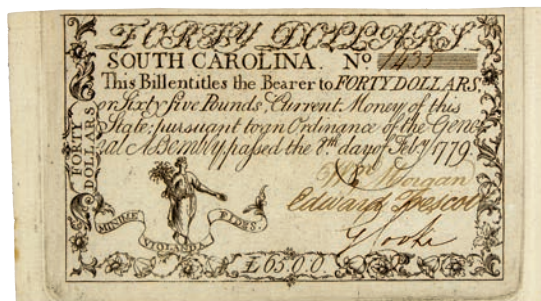 FORTY DOLLARS
SOUTH CAROLINA. No 1435
This Bill entitles the Bearer to FORTY DOLLARS,
or Sixty five Pounds, Current Money of this
State; pursuant to an Ordinance of the Gene
ral Assembly, passed the 8th. day of Feby 1779
FORTY
DOLLARS
Morgan
Edward Prescot
G Cooke
MINIME
VIOLANDA
FIDES.
£65.0.0